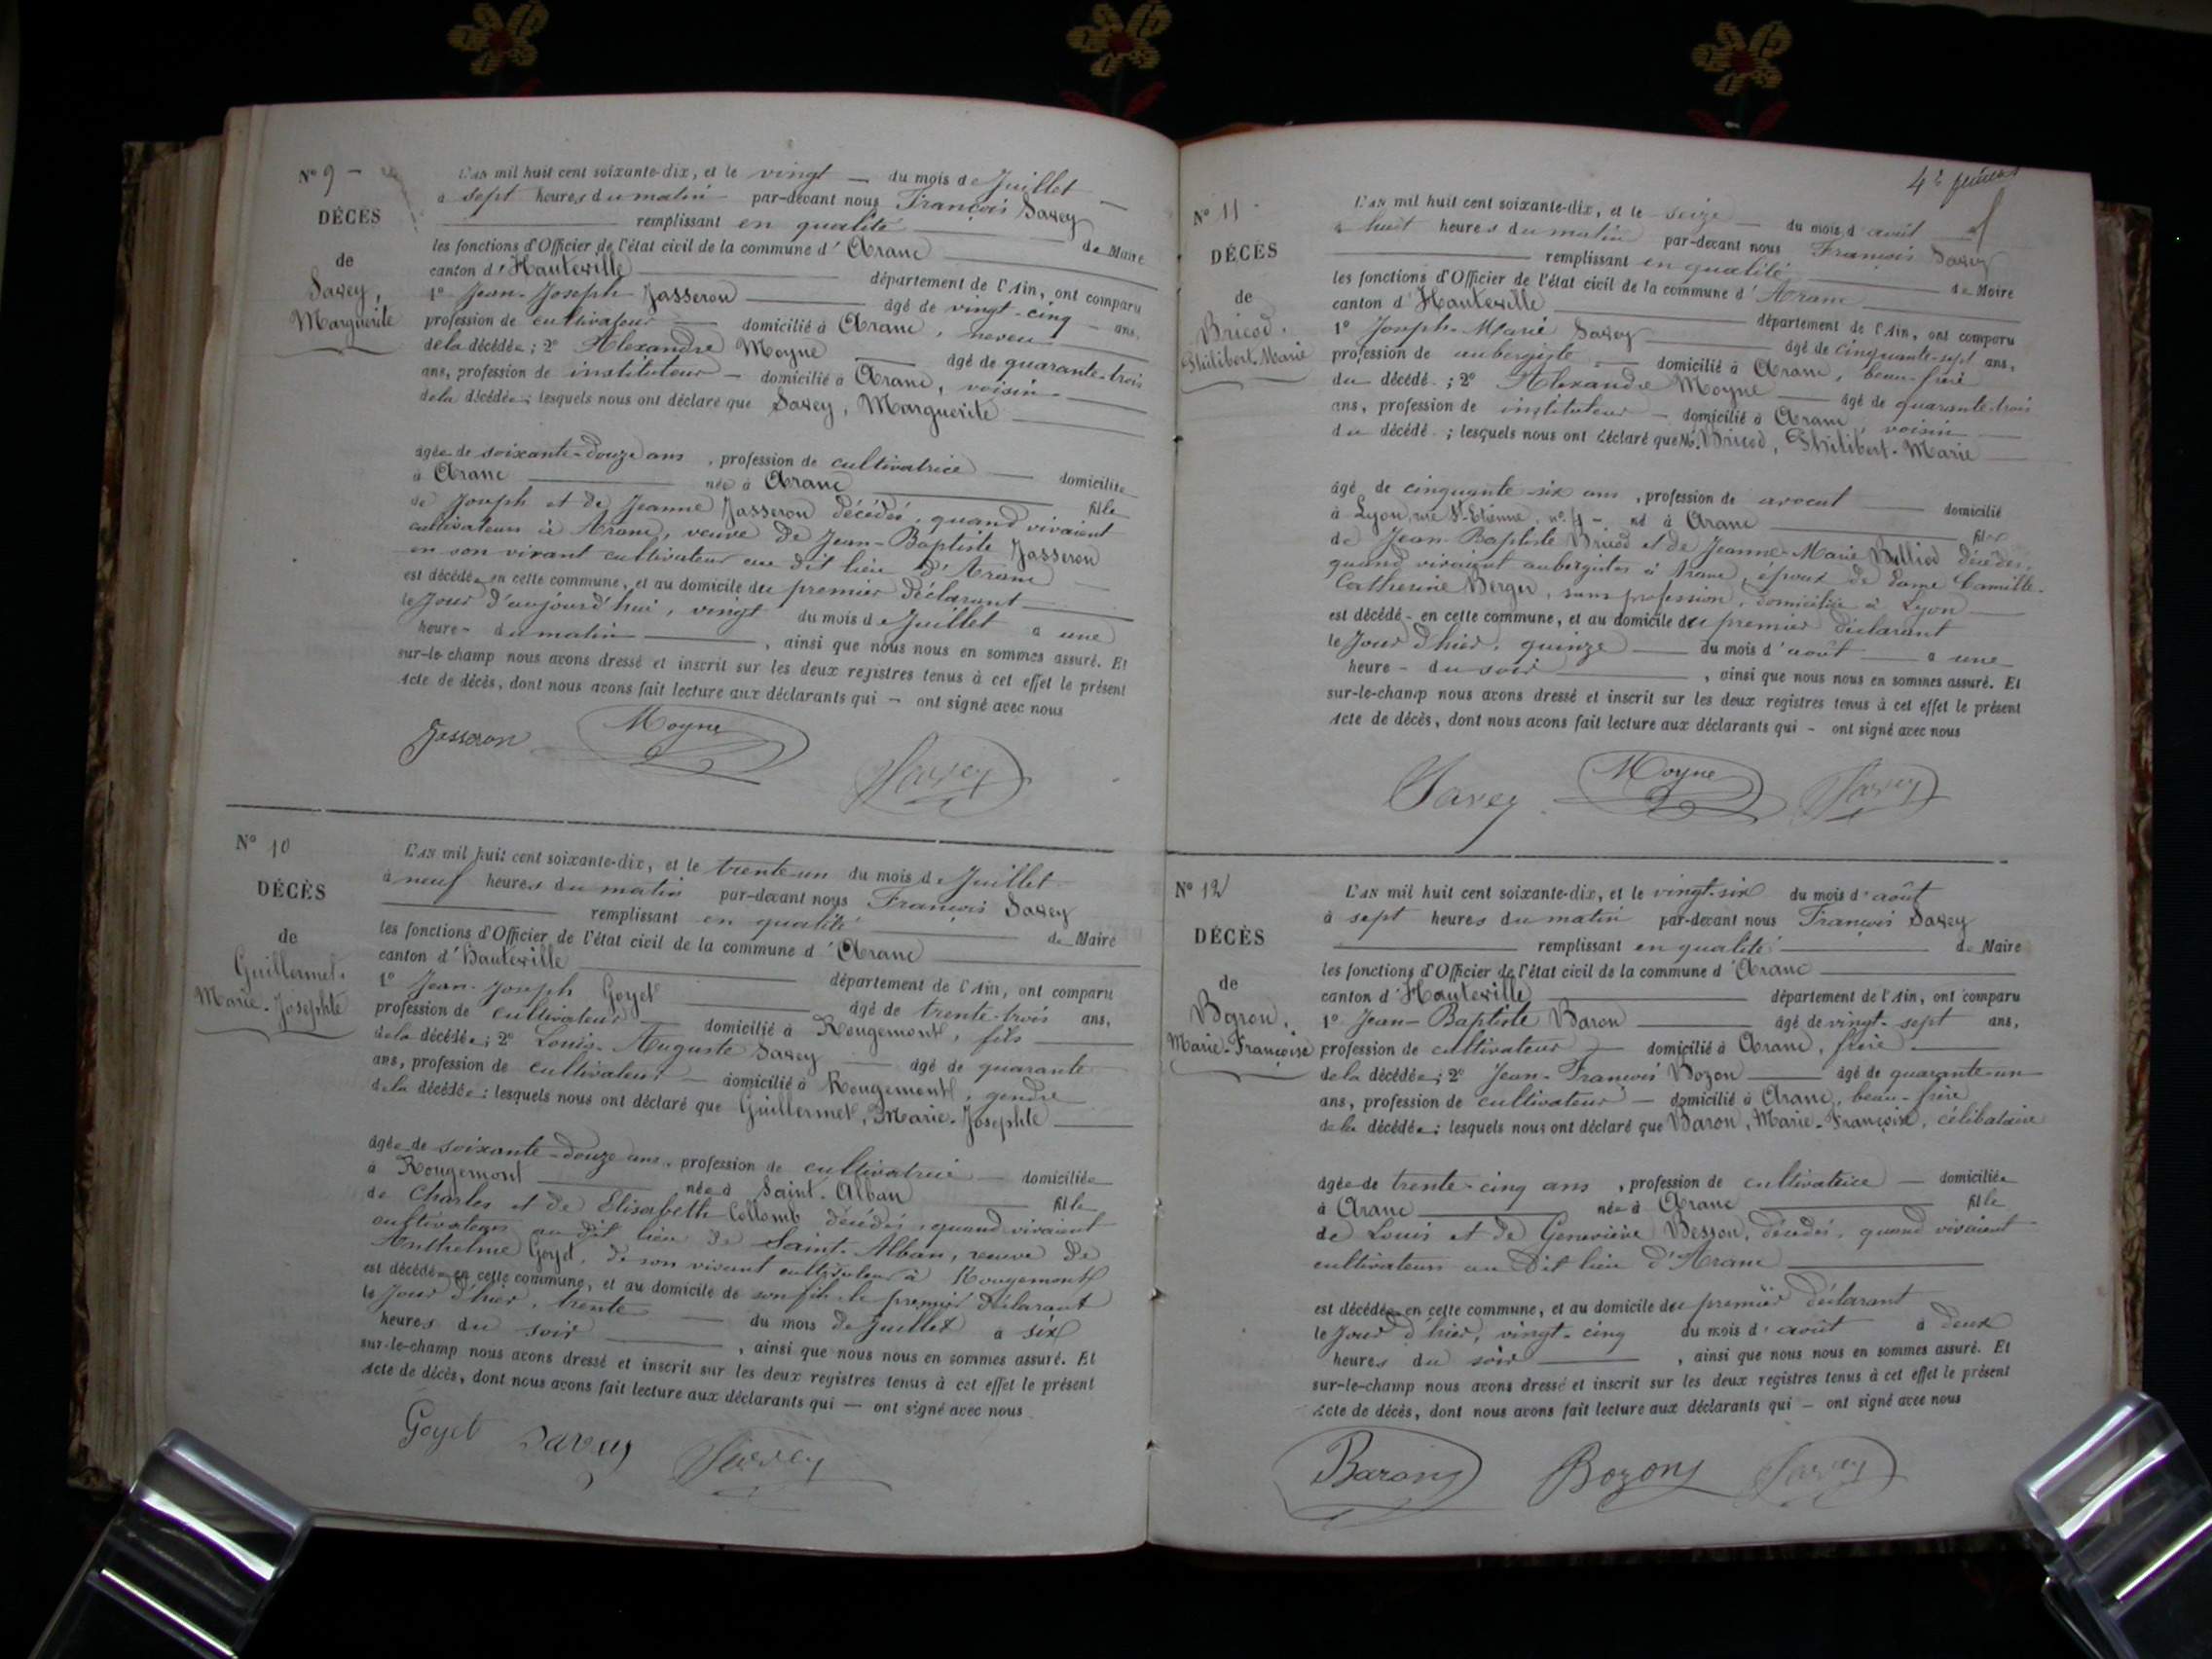 N° 9 —
DÉCÈS
de
Savey,
Marguerite
L'AN mil huit cent soixante-dix, et le vingt — du mois de Juillet
à sept heures du matin par-devant nous François Savey
remplissant en qualité de Maire
les fonctions d'Officier de l'état civil de la commune d'Aranc
canton d'Hauteville département de l'Ain, ont comparu
1° Jean-Joseph Jasseron âgé de vingt-cinq ans,
profession de cultivateur domicilié à Aranc, neveu
de la décédée; 2° Alexandre Moyne âgé de quarante-trois
ans, profession de instituteur domicilié à Aranc, voisin
de la décédée; lesquels nous ont déclaré que Savey, Marguerite
âgée de soixante-douze ans, profession de cultivatrice domiciliée
à Aranc née à Aranc fille
de Joseph et de Jeanne Jasseron décédés, quand vivaient
cultivateurs à Aranc, veuve de Jean-Baptiste Jasseron
en son vivant cultivateur au dit lieu d'Aranc
est décédée en cette commune, et au domicile du premier déclarant
le Jour d'aujourd'hui, vingt du mois de Juillet à une
heure du matin, ainsi que nous nous en sommes assuré. Et
sur-le-champ nous avons dressé et inscrit sur les deux registres tenus à cet effet le présent
acte de décès, dont nous avons fait lecture aux déclarants qui — ont signé avec nous
Jasseron Moyne Savey
N° 10
DÉCÈS
de
Guillermet.
Marie-Josephte
L'AN mil huit cent soixante-dix, et le trente-un du mois de Juillet
à neuf heures du matin par-devant nous François Savey
remplissant en qualité de Maire
les fonctions d'Officier de l'état civil de la commune d'Aranc
canton d'Hauteville département de l'Ain, ont comparu
1° Jean-Joseph Goyet âgé de trente-trois ans,
profession de cultivateur domicilié à Rougemont, fils
de la décédée; 2° Louis-Auguste Savey âgé de quarante
ans, profession de cultivateur domicilié à Rougemont, gendre
de la décédée; lesquels nous ont déclaré que Guillermet, Marie-Josephte
âgée de soixante-douze ans, profession de cultivatrice domiciliée
à Rougemont née à Saint-Alban fille
de Charles et de Elisabeth Collomb décédés, quand vivaient
cultivateurs au dit lieu de Saint-Alban, veuve de
Anthelme Goyet, de son vivant cultivateur à Rougemont
est décédée en cette commune, et au domicile de son fils le premier déclarant
le Jour d'hier, trente du mois de Juillet à six
heures du soir, ainsi que nous nous en sommes assuré. Et
sur-le-champ nous avons dressé et inscrit sur les deux registres tenus à cet effet le présent
acte de décès, dont nous avons fait lecture aux déclarants qui — ont signé avec nous
Goyet Savey Savey
4e
N° 11
DÉCÈS
de
Bricod.
Philibert-Marie
L'AN mil huit cent soixante-dix, et le seize du mois d'août
à huit heures du matin par-devant nous François Savey
remplissant en qualité de Maire
les fonctions d'Officier de l'état civil de la commune d'Aranc
canton d'Hauteville département de l'Ain, ont comparu
1° Joseph-Marie Savey âgé de cinquante-sept ans,
profession de aubergiste domicilié à Aranc, beau-frère
du décédé; 2° Alexandre Moyne âgé de quarante-trois
ans, profession de instituteur domicilié à Aranc, voisin
du décédé; lesquels nous ont déclaré que M. Bricod, Philibert-Marie
âgé de cinquante-six ans, profession de avocat domicilié
à Lyon, rue St-Etienne, n° 4 né à Aranc fils
de Jean-Baptiste Bricod et de Jeanne-Marie Billiod décédés,
quand vivaient aubergistes à Aranc, époux de Dame Camille-
Catherine Berger, sans profession, domiciliée à Lyon
est décédé en cette commune, et au domicile du premier déclarant
le Jour d'hier, quinze du mois d'août à une
heure du soir, ainsi que nous nous en sommes assuré. Et
sur-le-champ nous avons dressé et inscrit sur les deux registres tenus à cet effet le présent
acte de décès, dont nous avons fait lecture aux déclarants qui — ont signé avec nous
Savey Moyne Savey
N° 12
DÉCÈS
de
Baron,
Marie-Françoise
L'AN mil huit cent soixante-dix, et le vingt-six du mois d'août
à sept heures du matin par-devant nous François Savey
remplissant en qualité de Maire
les fonctions d'Officier de l'état civil de la commune d'Aranc
canton d'Hauteville département de l'Ain, ont comparu
1° Jean-Baptiste Baron âgé de vingt-sept ans,
profession de cultivateur domicilié à Aranc, frère
de la décédée; 2° Jean-François Bozon âgé de quarante-un
ans, profession de cultivateur domicilié à Aranc, beau-frère
de la décédée; lesquels nous ont déclaré que Baron, Marie-Françoise, célibataire
âgée de trente-cinq ans, profession de cultivatrice domiciliée
à Aranc née à Aranc fille
de Louis et de Geneviève Besson, décédés, quand vivaient
cultivateurs au dit lieu d'Aranc
est décédée en cette commune, et au domicile du premier déclarant
le Jour d'hier, vingt-cinq du mois d'août à deux
heures du soir, ainsi que nous nous en sommes assuré. Et
sur-le-champ nous avons dressé et inscrit sur les deux registres tenus à cet effet le présent
acte de décès, dont nous avons fait lecture aux déclarants qui — ont signé avec nous
Baron Bozon Savey